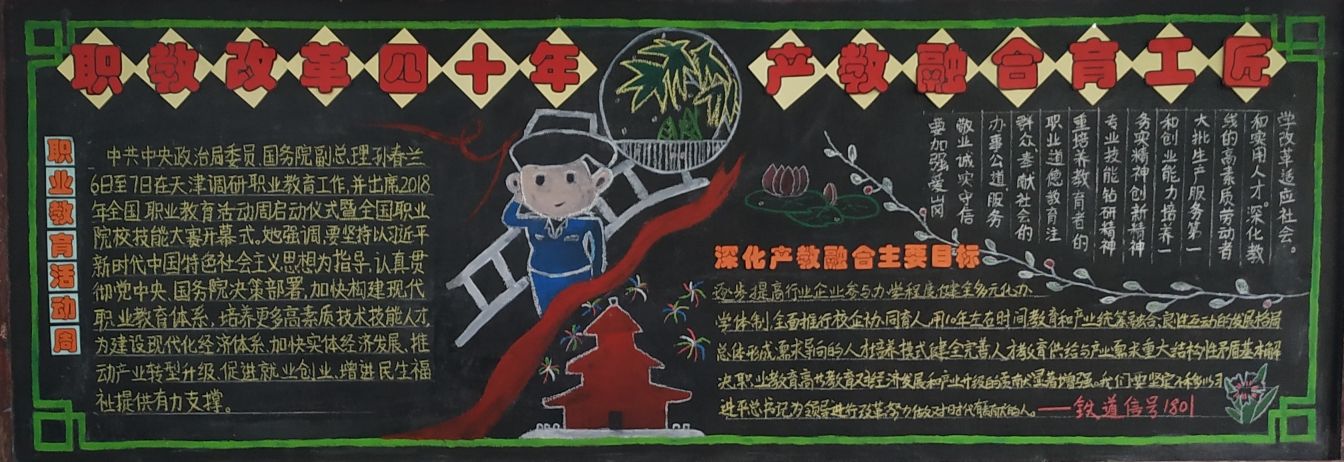 职教改革四十年
产教融合育工匠
职业教育活动周
中共中央政治局委员、国务院副总理孙春兰
6日至7日在天津调研职业教育工作,并出席2018
年全国职业教育活动周启动仪式暨全国职业
院校技能大赛开幕式。她强调,要坚持以习近平
新时代中国特色社会主义思想为指导,认真贯
彻党中央、国务院决策部署,加快构建现代
职业教育体系,培养更多高素质技术技能人才,
为建设现代化经济体系,加快实体经济发展、推
动产业转型升级,促进就业创业,增进民生福
祉提供有力支撑。
要加强爱岗
敬业诚实守信
办事公道服务
群众奉献社会的
职业道德教育注
重培养教育者的
专业技能钻研精神
务实精神创新精神
和创业能力培养一
大批生产服务第一
线的高素质劳动者
和实用人才。深化教
学改革适应社会。
深化产教融合主要目标
逐步提高行业企业参与办学程度,健全多元化办
学体制,全面推行校企协同育人,用10年左右时间,教育和产业统筹融合、良性互动的发展格局
总体形成,需求导向的人才培养模式健全完善,人才教育供给与产业需求重大结构性矛盾基本解
决,职业教育、高等教育对经济发展和产业升级的贡献显著增强。我们要坚定不移以习
近平总书记为领导进行改革,努力做对时代有贡献的人。——铁道信号1801